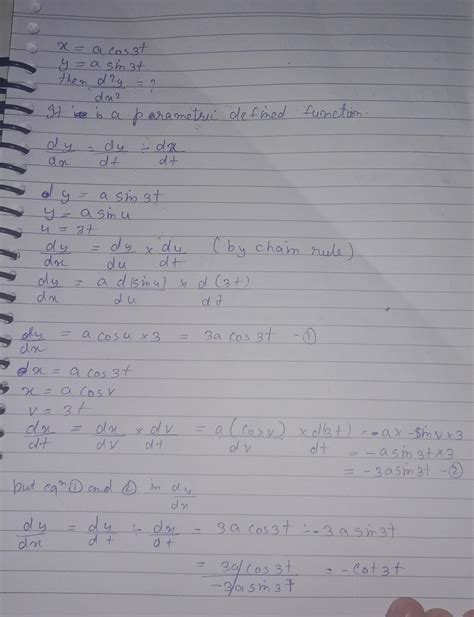 x = a cos3t
y = a sin3t
then d²y/dx² = ?
It is a parametric defined function.
dy/dx = dy/dt ÷ dx/dt
dy = a sin3t
y = a sinu
u = 3t
dy/dx = dy/du × du/dt (by chain rule)
dy/dx = a d(sinu)/du × d(3t)/dt
dy/dx = a cosu × 3 = 3a cos3t - ①
dx = a cos3t
x = a cosv
v = 3t
dx/dt = dx/dv × dv/dt = a(cosv)/dv × d(3t)/dt = -ax -sinv×3
= -a sin3t×3
= -3a sin3t - ②
but eqⁿ ① and ② in dy/dx
dy/dx = dy/dt ÷ dx/dt = 3a cos3t ÷ -3a sin3t
= 3a cos3t/-3a sin3t = -cot3t